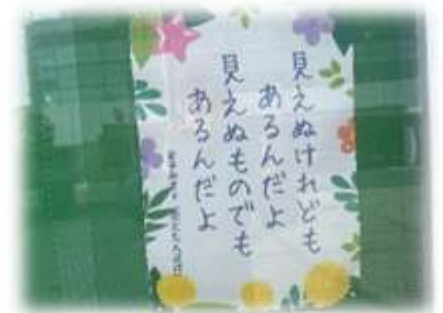 見えぬけれども
あるんだよ
見えぬものでも
あるんだよ